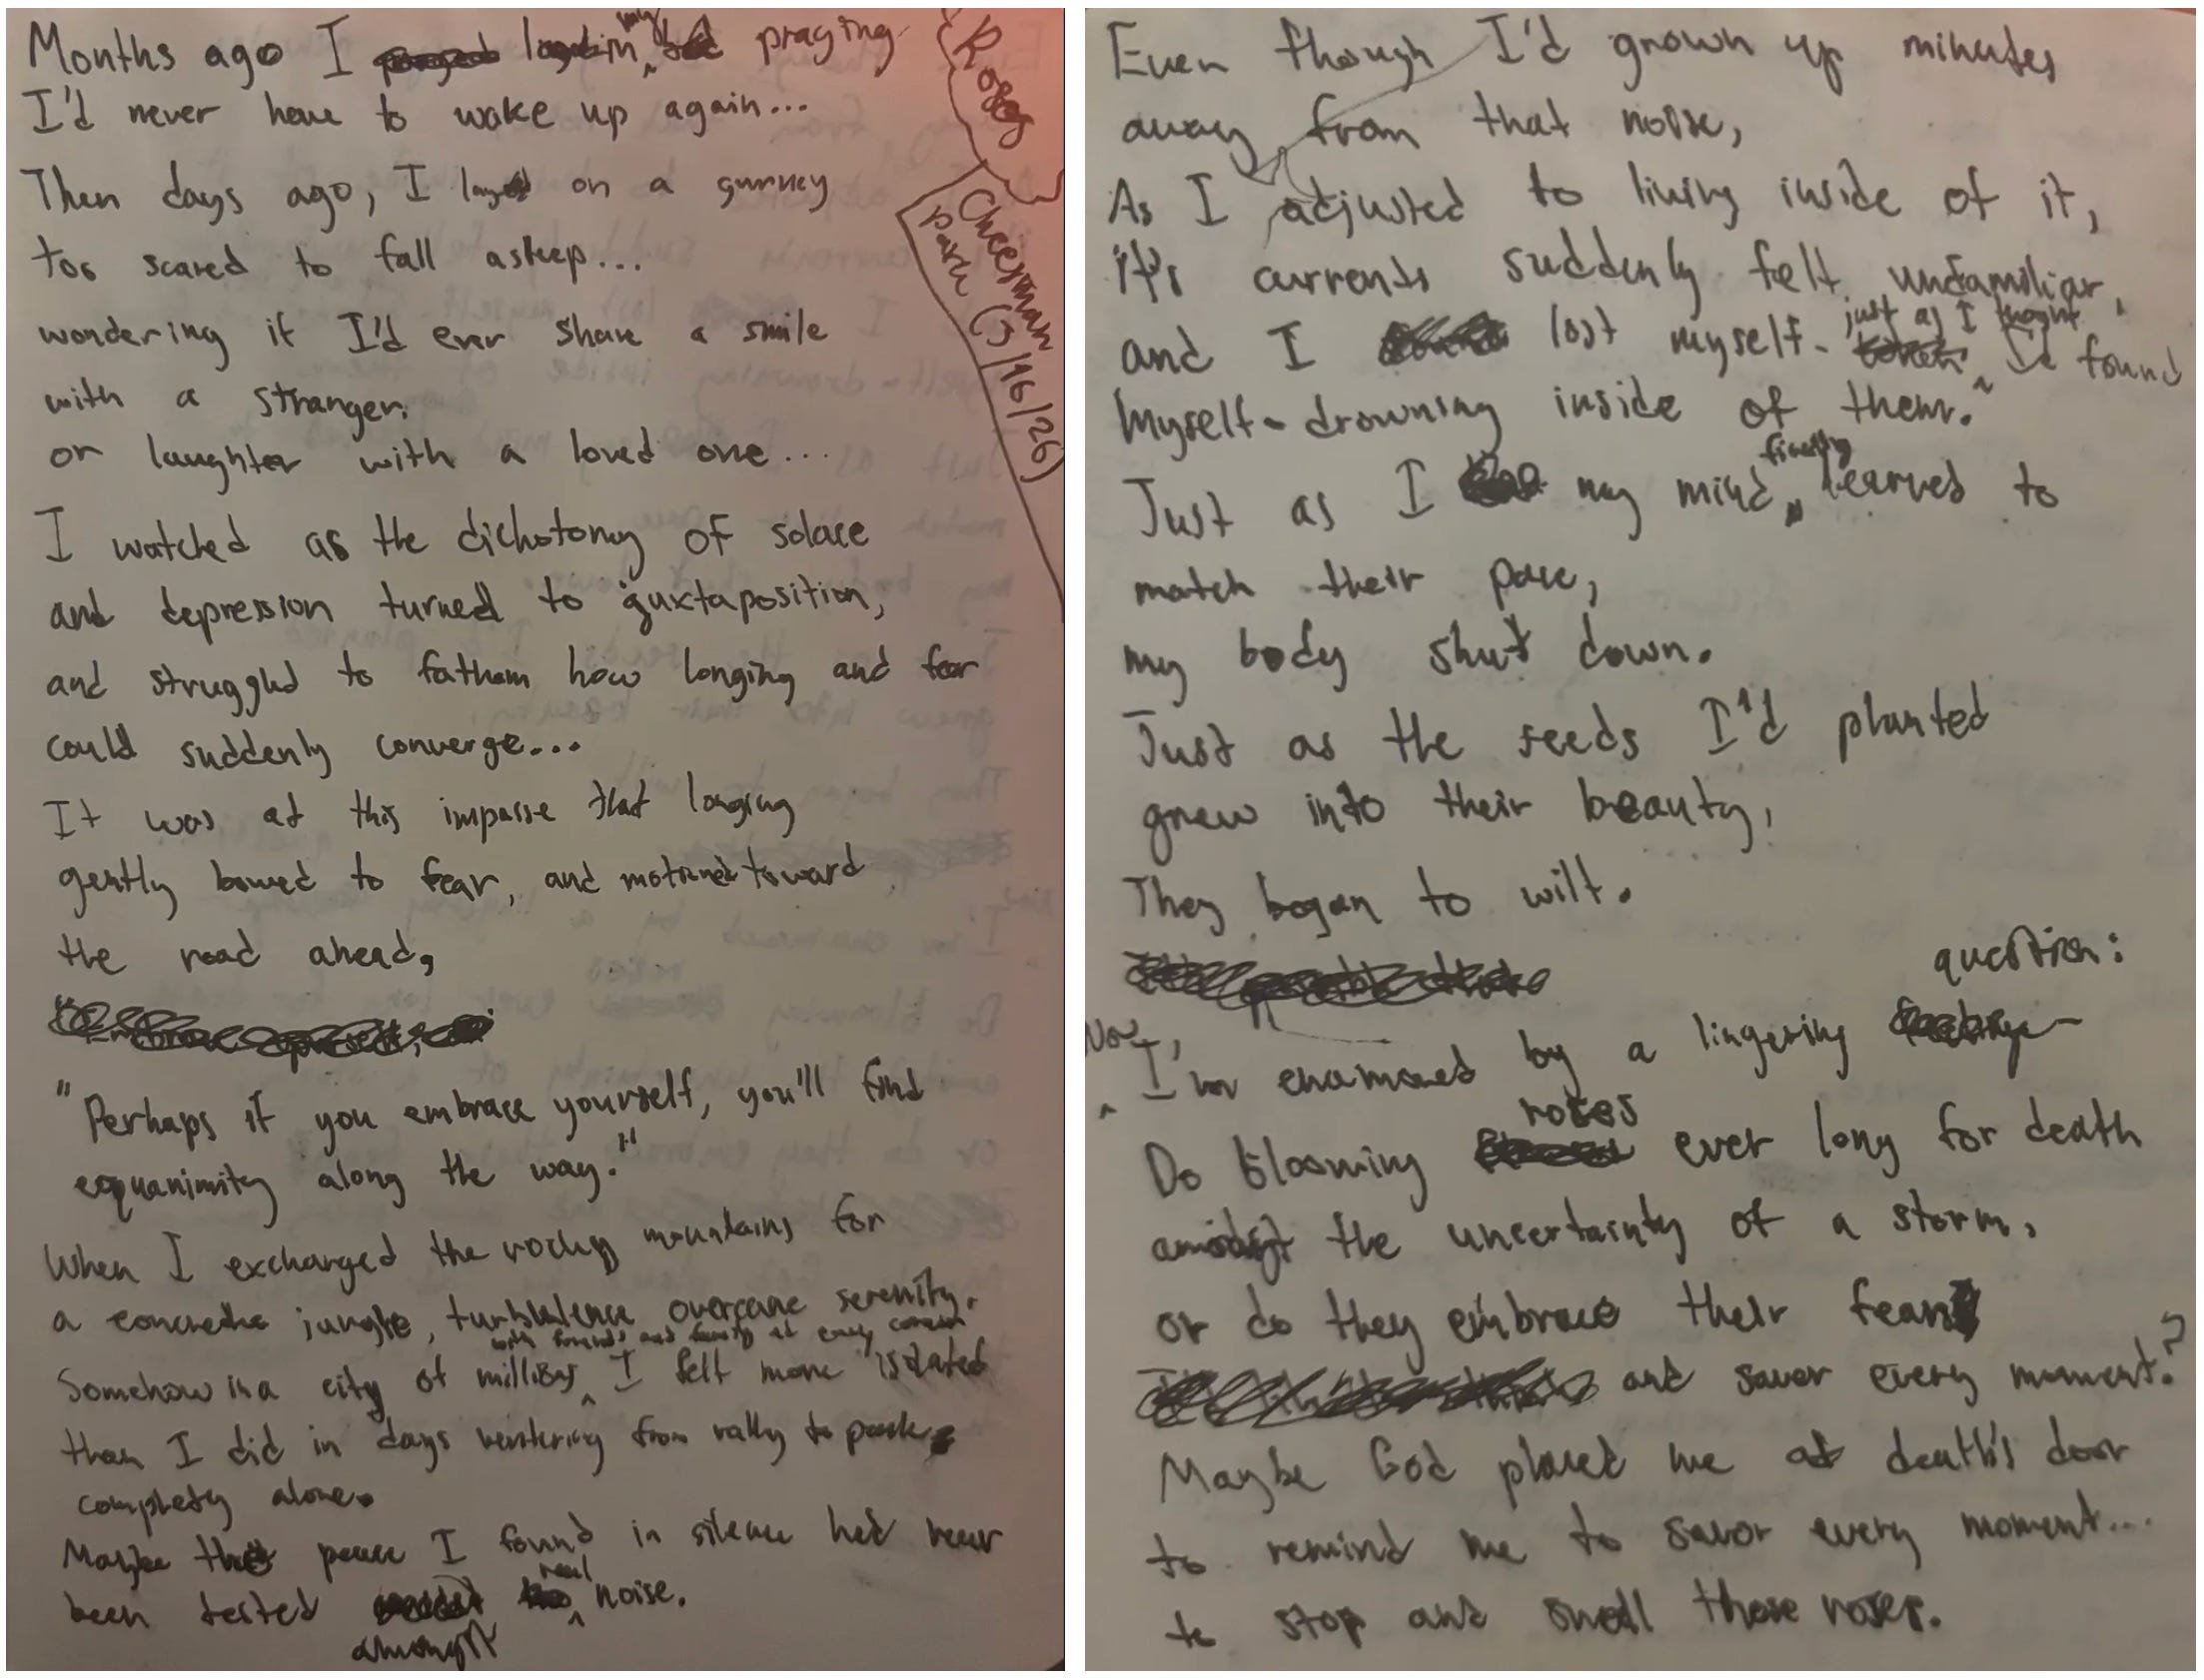 Roses
Cheesman
park (3/16/26)
Months ago I lay in my bed praying
I'd never have to wake up again...
Then days ago, I lay on a gurney
too scared to fall asleep...
wondering if I'd ever share a smile
with a stranger,
or laughter with a loved one...
I watched as the dichotomy of solace
and depression turned to juxtaposition,
and struggled to fathom how longing and fear
could suddenly converge...
It was at this impasse that longing
gently bowed to fear, and motioned toward
the road ahead,
"Perhaps if you embrace yourself, you'll find
equanimity along the way."
When I exchanged the rocky mountains for
a concrete jungle, turbulence overcame serenity.
Somehow in a city of millions with friends and family at every corner I felt more isolated
than I did in days venturing from valley to peak
completely alone.
Maybe the peace I found in silence had never
been tested amongst real noise.
Even though I'd grown up minutes
away from that noise,
As I adjusted to living inside of it,
it's currents suddenly felt unfamiliar,
and I lost myself - just as I thoght I'd found
myself - drowning inside of them.
Just as my mind finally learned to
match their pace,
my body shut down.
Just as the seeds I'd planted
grew into their beauty,
They began to wilt.
Now, I'm enamored by a lingering question:
Do blooming roses ever long for death
amidst the uncertainty of a storm,
or do they embrace their fear
and savor every moment?
Maybe God placed me at death's door
to remind me to savor every moment...
to stop and smell those roses.